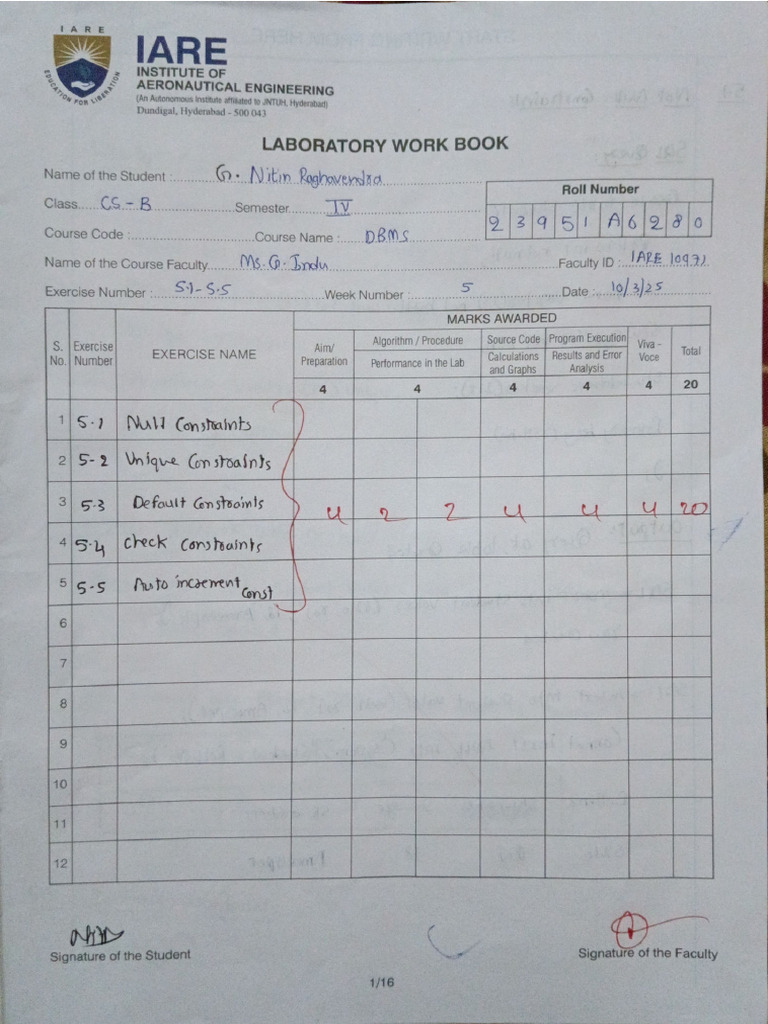 I A R E
EDUCATION FOR LIBERATION
IARE
INSTITUTE OF
AERONAUTICAL ENGINEERING
(An Autonomous Institute affiliated to JNTUH, Hyderabad)
Dundigal, Hyderabad - 500 043
LABORATORY WORK BOOK
Name of the Student : G. Nitin Raghavendra
Roll Number
Class CS-B Semester IV
23951A6280
Course Code : Course Name : DBMS
Name of the Course Faculty Ms. G. Indu Faculty ID : IARE 10971
Exercise Number : 5.1-5.5 Week Number : 5 Date : 10/3/25
S. No. Exercise Number EXERCISE NAME MARKS AWARDED
Aim/ Preparation Algorithm / Procedure Source Code Program Execution Viva - Voce Total
Performance in the Lab Calculations and Graphs Results and Error Analysis
4 4 4 4 4 20
1 5.1 Null Constraints
2 5-2 Unique Constraints
3 5.3 Default Constraints 4 2 2 4 4 4 20
4 5.4 Check Constraints
5 5-5 Auto increment Const
6
7
8
9
10
11
12
Signature of the Student Signature of the Faculty
1/16